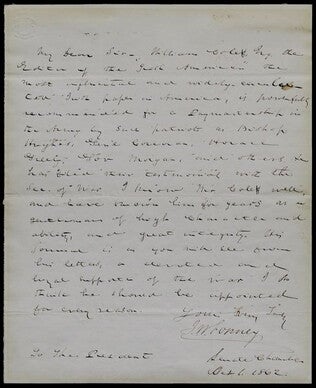 My Dear Sir. William Cole, Esq the
Editor of the Irish American the
most influential and widely circula-
ted Irish paper in America, is powerfully
recommended for a Paymastership in
the Army by such patriots as Bishop
Hughes, Genl Corcoran, Horace
Greeley, Gov Morgan, and others, &
has filed new testimonials with the
Sec. of War. I know Mr Cole well,
and have known him for years as a
gentleman of high character and
ability, and great integrity. His
journal is as you will see from
his letter, a devoted and
loyal supporter of the war. I do
think he should be appointed
for every reason.
Yours Very Truly
J W Forney
To The President
Senate Chamber
Oct 1. 1862